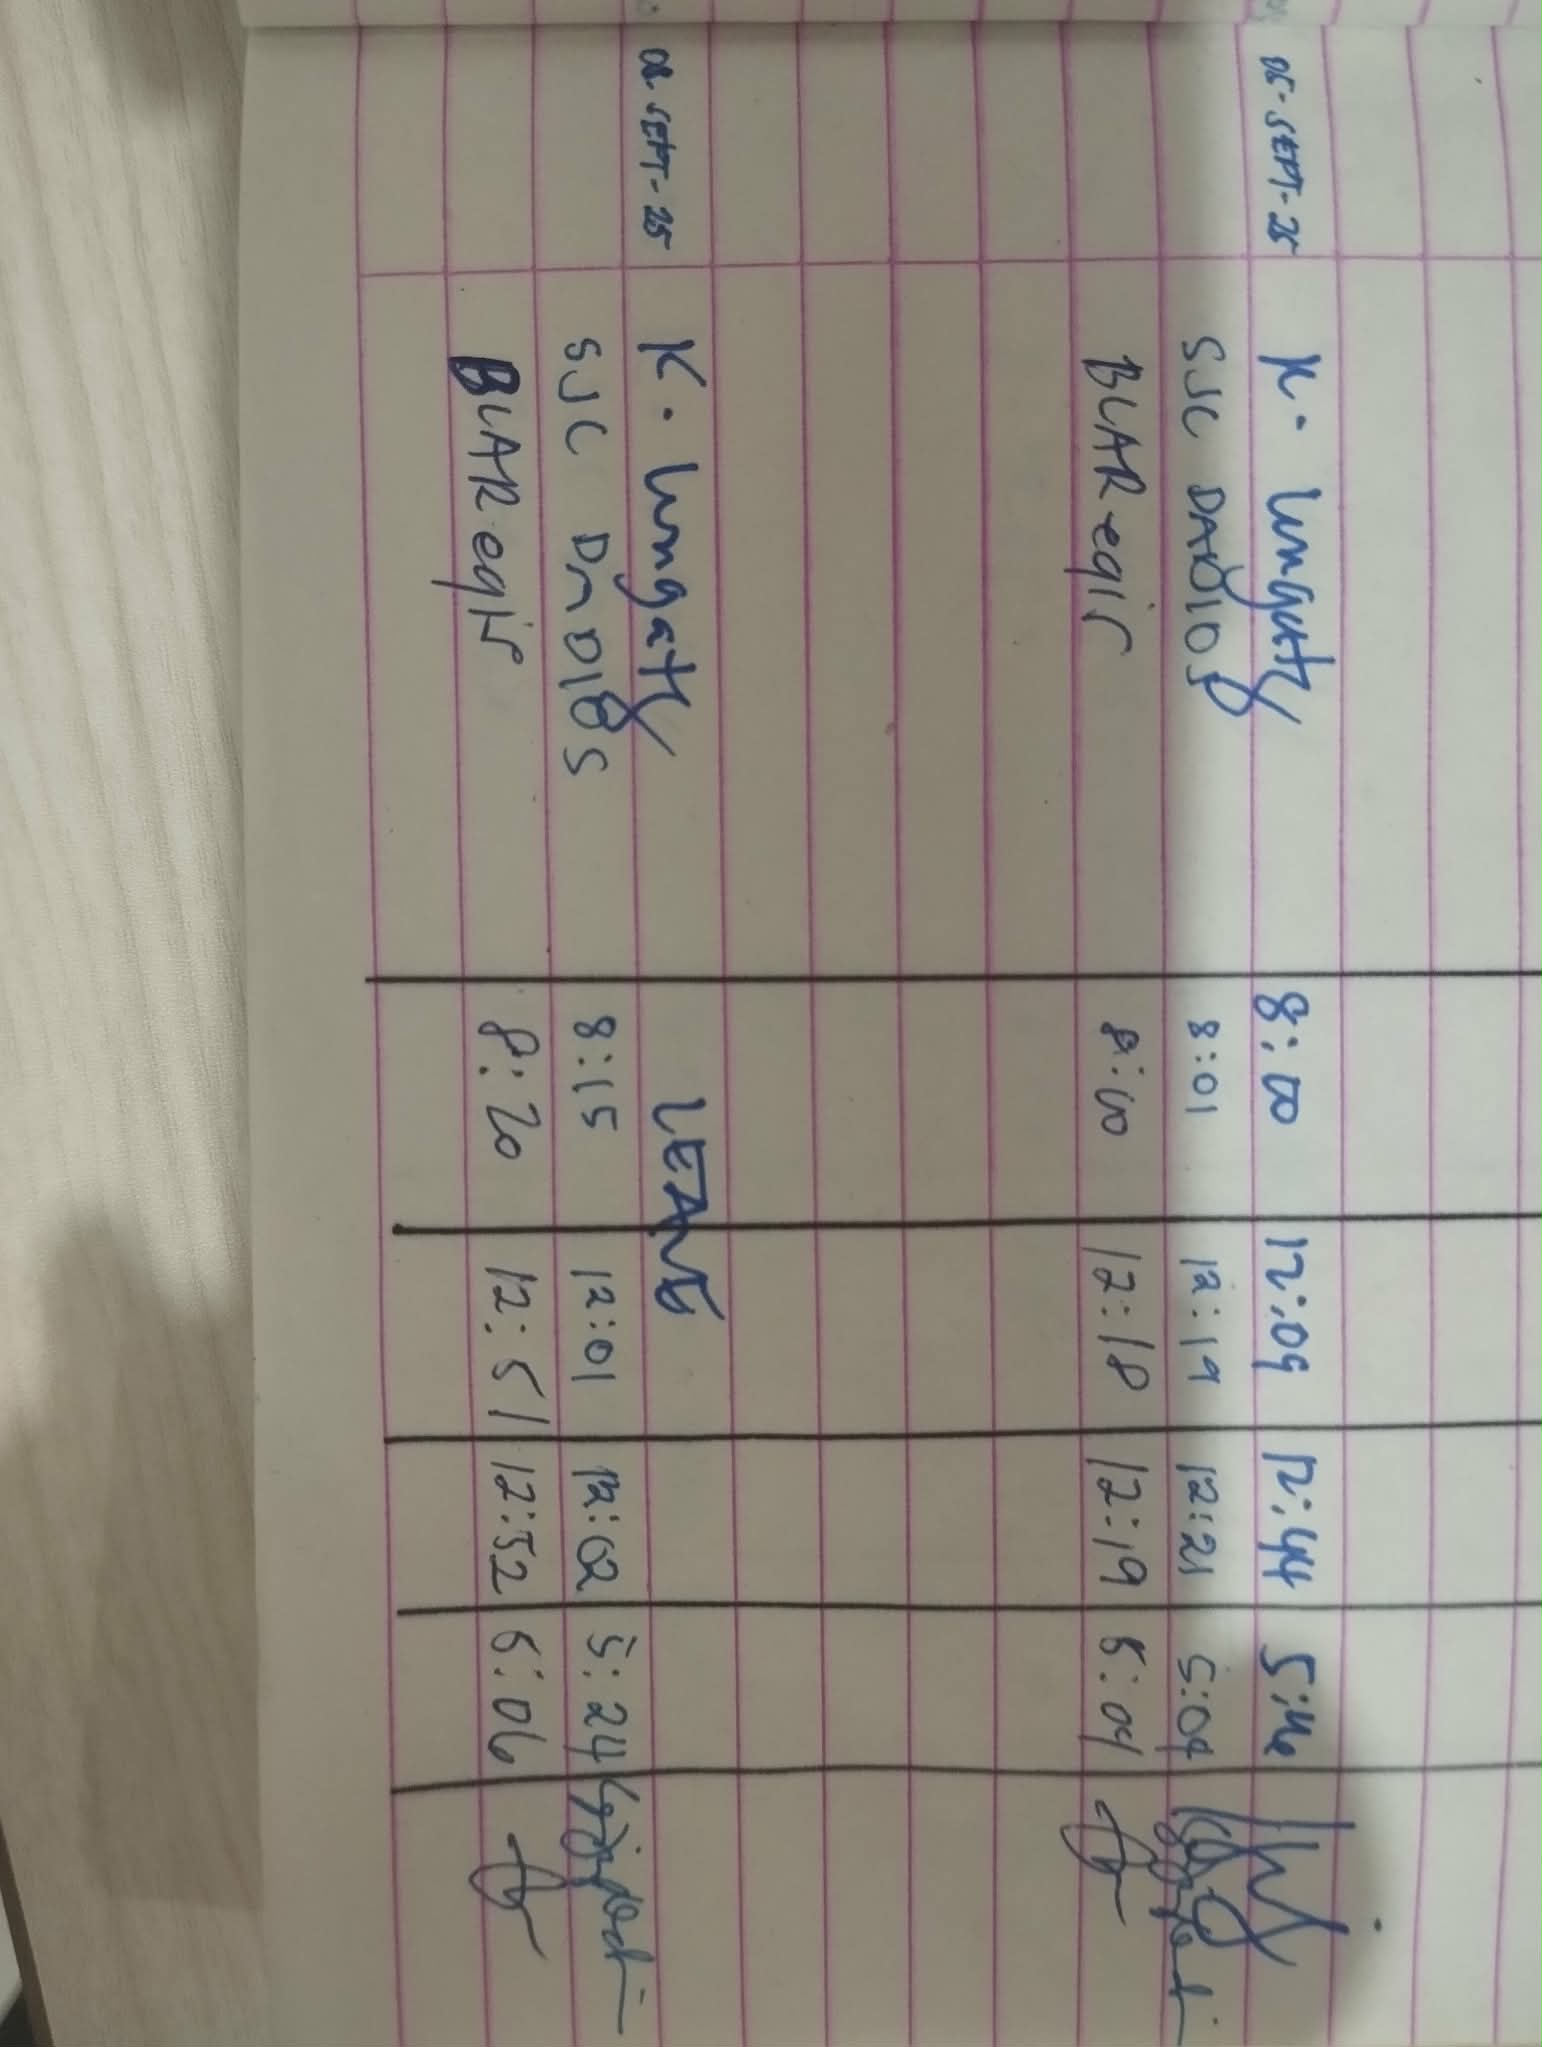 05-SEPT-25 K. Lungaty 8:00 12:09 12:44 5:46
SJC DADIOS 8:01 12:19 12:21 5:04
BLAR eqir 8:00 12:18 12:19 5:04
08-SEPT-25 K. Lungaty LEAVE
SJC DADIOS 8:15 12:01 12:02 5:24
BLAR eqir 8:20 12:51 12:52 5:06